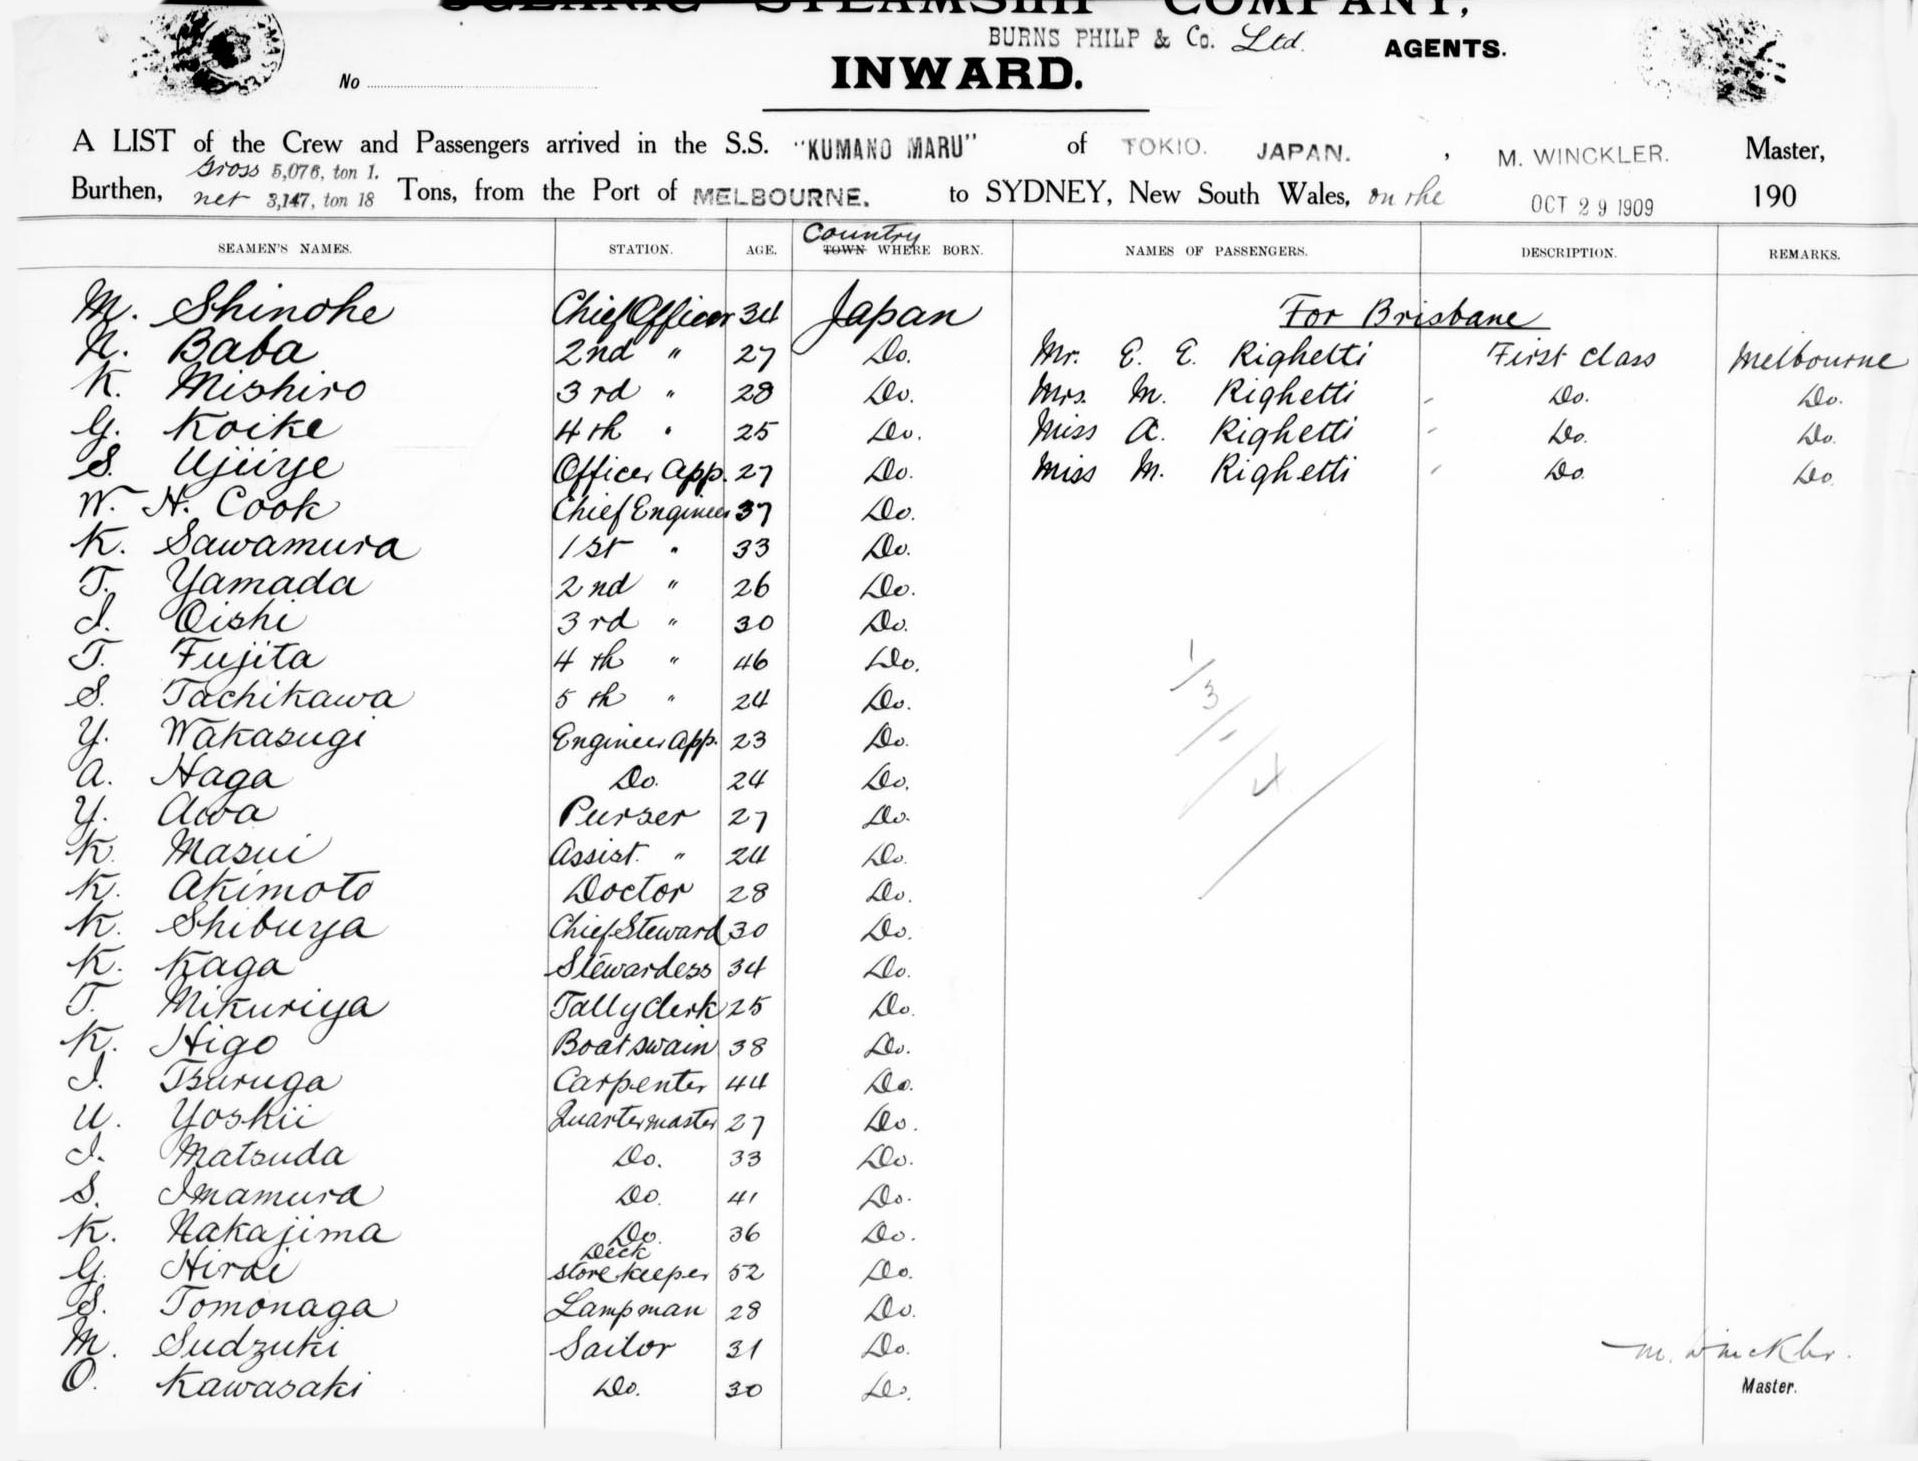 OCEANIC STEAMSHIP COMPANY,
BURNS PHILP & Co. Ltd. AGENTS.
INWARD.
No
A LIST of the Crew and Passengers arrived in the S.S. "KUMANO MARU" of TOKIO. JAPAN. , M. WINCKLER. Master,
Gross 5,076, ton 1.
Burthen, net 3,147, ton 18 Tons, from the Port of MELBOURNE. to SYDNEY, New South Wales, on the OCT 29 1909 190
Country
SEAMEN'S NAMES. STATION. AGE. TOWN WHERE BORN. NAMES OF PASSENGERS. DESCRIPTION. REMARKS.
M. Shinohe Chief Officer 34 Japan For Brisbane
N. Baba 2nd " 27 Do. Mr. E. E. Righetti First class Melbourne
K. Mishiro 3rd " 28 Do. Mrs. M. Righetti Do. Do.
G. Koike 4th " 25 Do. Miss A. Righetti Do. Do.
S. Ujiiye Officer App. 27 Do. Miss M. Righetti Do. Do.
W. H. Cook Chief Engineer 37 Do.
K. Sawamura 1st " 33 Do.
T. Yamada 2nd " 26 Do.
I. Oishi 3rd " 30 Do.
T. Fujita 4th " 46 Do.
S. Tachikawa 5th " 24 Do.
Y. Wakasugi Engineer App. 23 Do.
A. Haga Do. 24 Do.
Y. Awa Purser 27 Do.
K. Masui Assist. " 24 Do.
K. Akimoto Doctor 28 Do.
K. Shibuya Chief Steward 30 Do.
K. Kaga Stewardess 34 Do.
T. Mikuriya Tally clerk 25 Do.
K. Higo Boatswain 38 Do.
I. Tsuruga Carpenter 44 Do.
U. Yoshii Quartermaster 27 Do.
I. Matsuda Do. 33 Do.
S. Imamura Do. 41 Do.
K. Nakajima Do. 36 Do.
G. Hirai Deck storekeeper 52 Do.
S. Tomonaga Lampman 28 Do.
M. Sudzuki Sailor 31 Do.
O. Kawasaki Do. 30 Do.
M. Winckler.
Master.